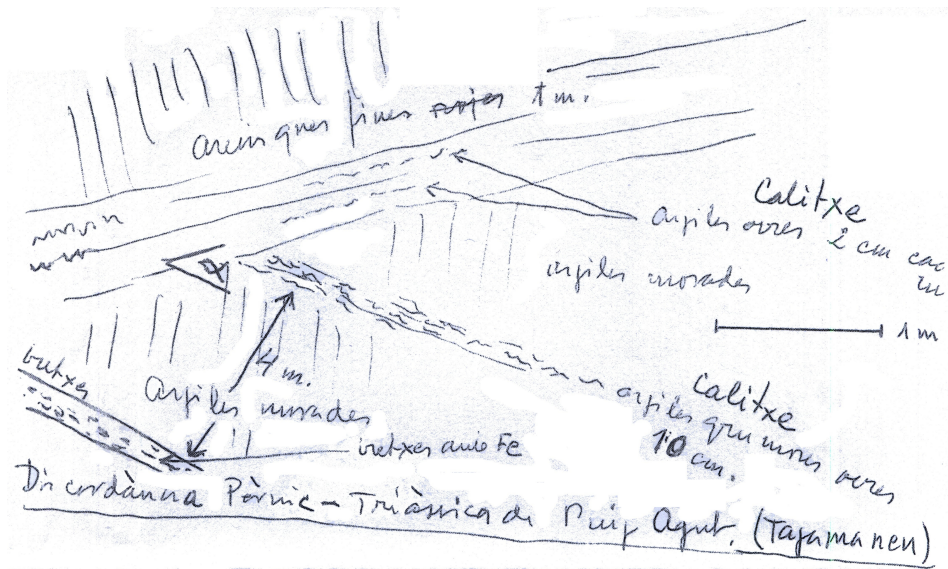 arenisques fines rojes 1 m.
Calitxe
Argiles ocres 2 cm cada
argiles morades
1 m
α
bretxes
4 m.
Argiles morades
Calitxe
argiles grumoses ocres
10 cm.
bretxes amb Fe
Discordànça Pèrmic - Triàssica de Puig Agut. (Tagamanen)